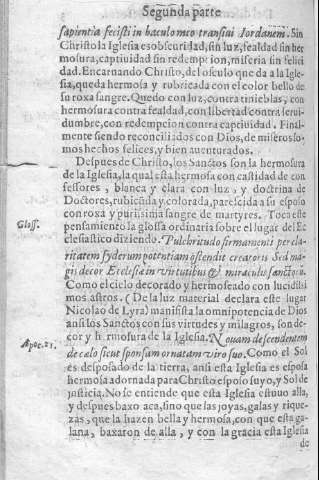 Segunda parte
sapientia fecisti in baculo meo transiui Iordanem. Sin
Christo la Iglesia es obscuridad, sin luz, fealdad sin her
mosura, captiuidad sin redempcion, miseria sin felici
dad. Encarnando Christo, del osculo que da a la Igle-
sia, queda hermosa y rubricada con el color bello de
su roxa sangre. Quedo con luz, contra tinieblas, con
hermosura contra fealdad, con libertad contra serui-
dumbre, con redempcion contra captiuidad. Final-
mente siendo reconciliados con Dios, de miserosso-
mos hechos felices, y bien auenturados.
Despues de Christo, los Sanctos son la hermosura
de la Iglesia, la qual esta hermosa con castidad de con
fessores, blanca y clara con luz, y doctrina de
Doctores, rubicũda y colorada, parescida a su esposo
con rosa y purissima sangre de martyres. Toca este
Gloss.
pensamiento la glossa ordinaria sobre el lugar del Ec
clesiastico diziendo. Pulchritudo firmamenti per cla-
ritatem syderum potentiam ostendit creatoris Sed ma-
gis decor Ecclesiæ in virtutibus & miraculis sanctorũ.
Como el cielo decorado y hermoseado con lucidissi
mos astros. (De la luz material declara este lugar
Nicolao de Lyra) manifista la omnipotencia de Dios
ansi los Sanctos con sus virtudes y milagros, son de-
cor y hermosura de la Iglesia. Nouam descendentem
Apoc. 21.
de cælo sicut sponsam ornatam viro suo. Como el Sol
es desposado de la tierra, ansi esta Iglesia es esposa
hermosa adornada para Christo esposo suyo, y Sol de
justicia. No se entiende que esta Iglesia estuuo alla,
y despues baxo aca, sino que las joyas, galas y rique-
zas, que la hazen bella y hermosa, con que esta ga-
lana, baxaron de alla, y con la gracia esta Iglesia
de